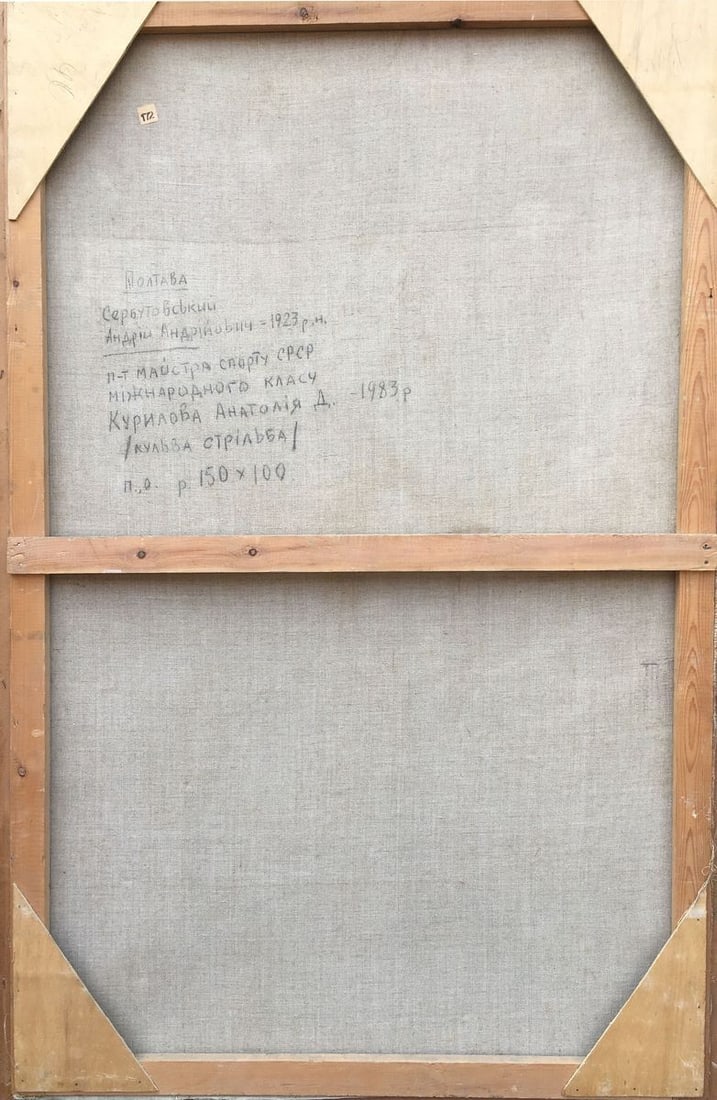 172
Полтава
Сербутовський
Андрій Андрійович = 1923 р.н.
п-т майстра спорту СРСР
міжнародного класу
Курилова Анатолія Д. -1983р
/кульва стрільба/
п.,о. р. 150 х 100